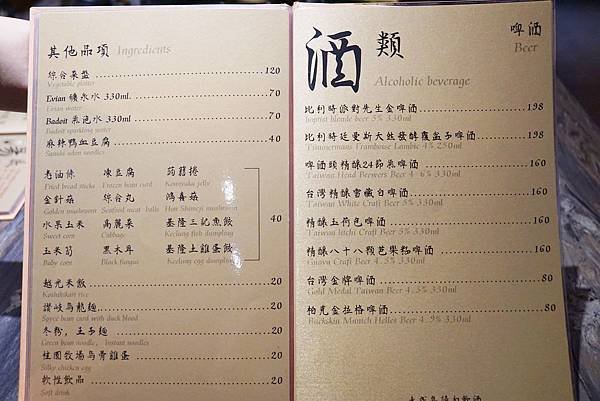 其他品項 Ingredients
綜合菜盤 120
Vegetable platter
Evian 礦泉水 330ml. 70
Evian water
Badoit 氣泡水 330ml 70
Badoit sparkling water
麻辣鴨血豆腐 40
老油條 凍豆腐 蒟蒻捲
Fried bread sticks Frozen bean curd Konnyaku jelly
金針菇 綜合丸 鴻喜菇
Golden mushroom Seafood meat balls Hon Shimeji mushrooms
水果玉米 高麗菜 基隆三記魚餃 40
Sweet corn Cabbage Keelung fish dumpling
玉米筍 黑木耳 基隆土雞蛋餃
Baby corn Black fungus Keelung egg dumpling
越光米飯 20
Koshihikari rice
讚岐烏龍麵 20
Spyce bean curd with duck blood
冬粉，王子麵 20
Green bean noodle, Instant noodles
桂園牧場烏骨雞蛋 20
Silky chicken egg
軟性飲品 20
Soft drink
酒類 啤酒
Alcoholic beverage Beer
比利時派對先生金啤酒 198
比利時廷曼斯天然發酵覆盆子啤酒 198
Timmermans Framboise Lambic 4% 250ml
啤酒頭精釀24節氣啤酒 160
Taiwan Head Brewers Beer 4~6% 330ml
台灣精釀雪藏白啤酒 160
Taiwan White Craft Beer 5% 330ml
精釀玉荷包啤酒 160
Taiwan litchi Craft Beer 5% 330ml
精釀八十八顆芭樂籽啤酒 160
Guava Craft Beer 4.5% 330ml
台灣金牌啤酒 80
Gold Medal Taiwan Beer 4.5% 330ml
柏克金拉格啤酒 80
Buckskin Munich Helles Beer 4.9% 330ml